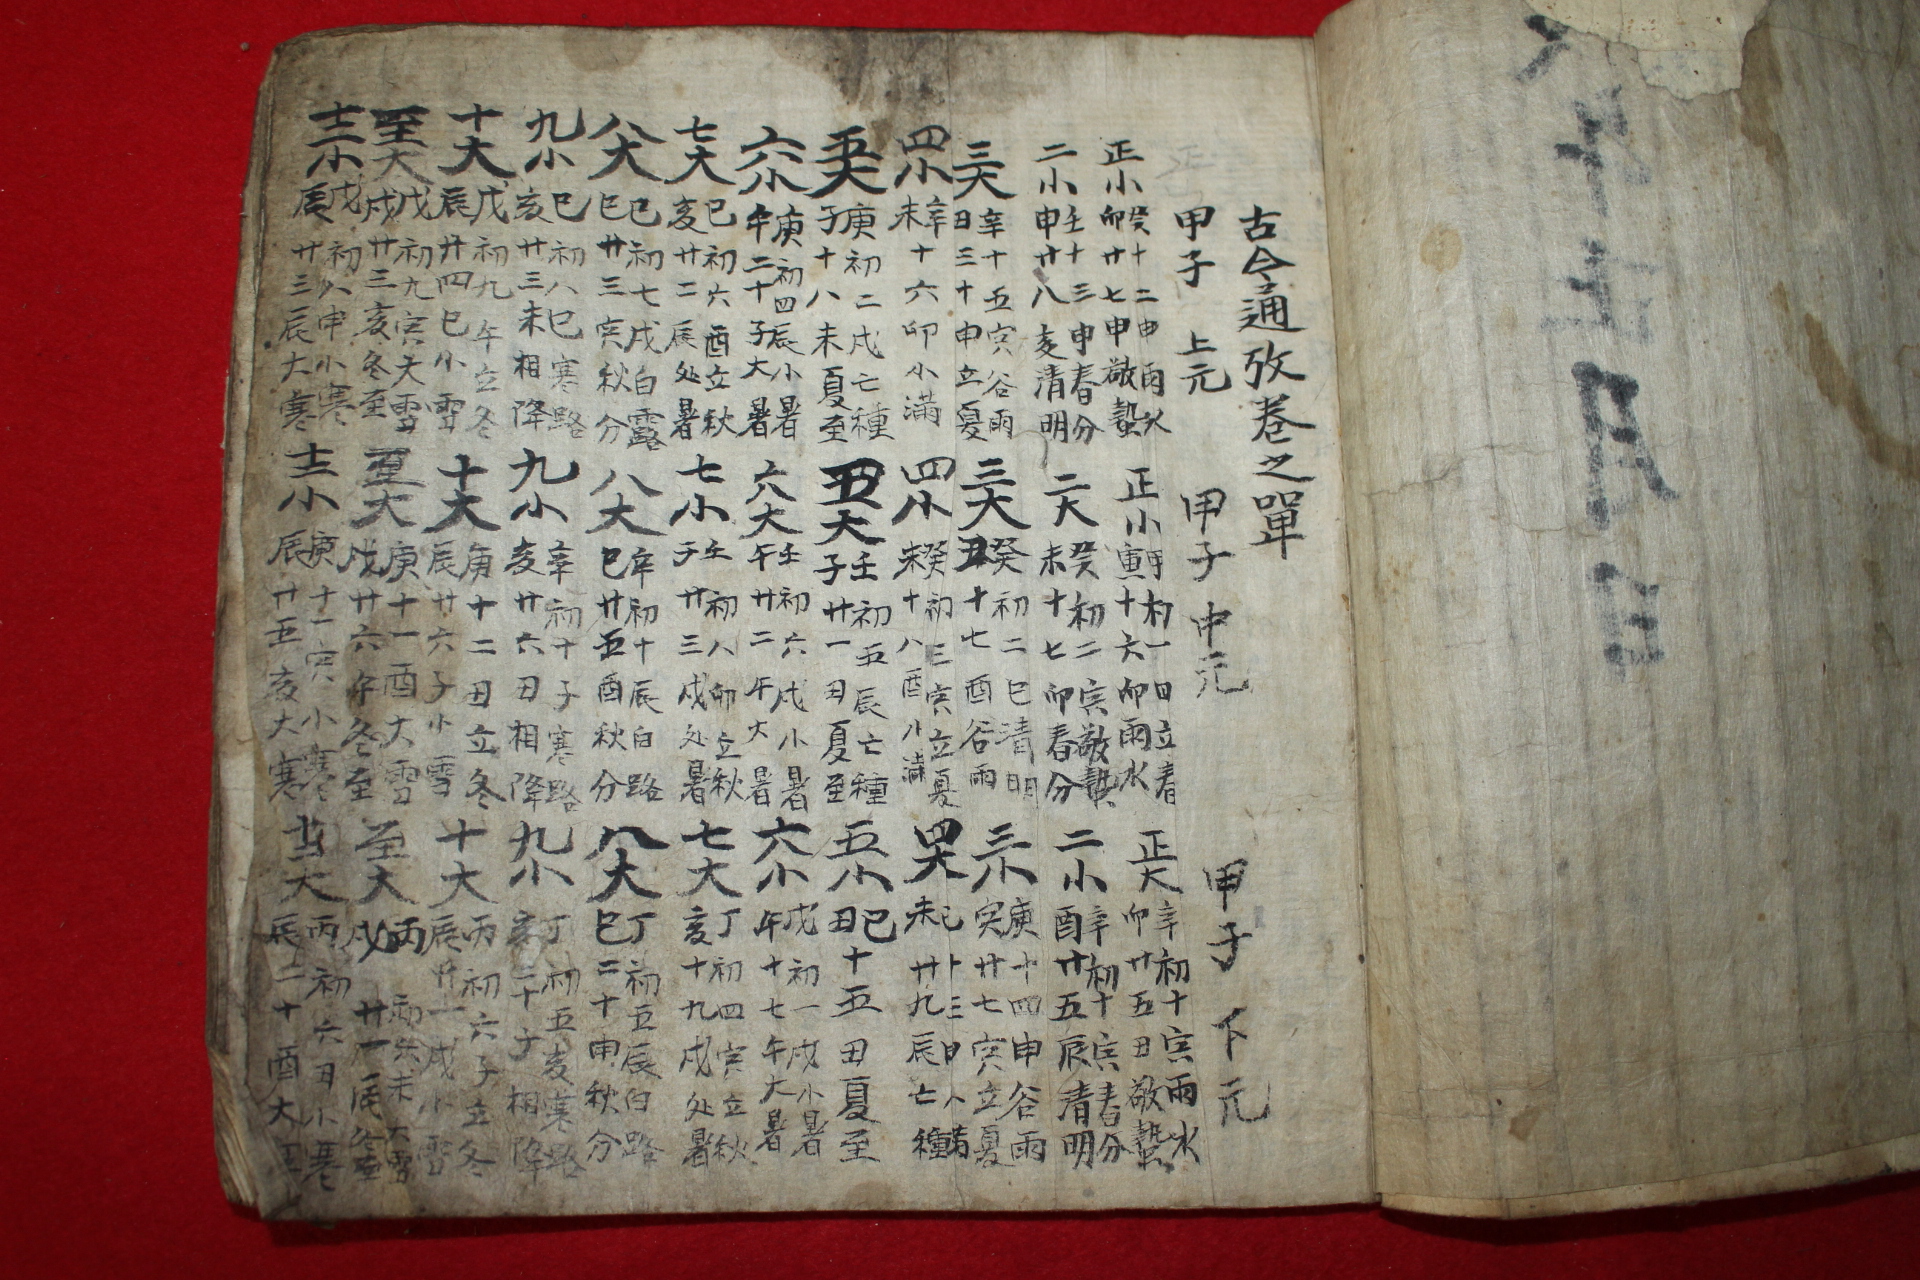 古今通攷卷之單
甲子 上元
正小 癸卯 十二申雨水 廿七申敬蟄
二小 壬申 十三申春分 廿八亥清明
三大 辛丑 十五寅谷雨 三十申立夏
四小 辛未 十六卯小滿
五大 庚子 初二戌亡種 十八未夏至
六小 庚午 初四辰小暑 二十子大暑
七大 己亥 初六酉立秋 廿二辰处暑
八大 己巳 初七戌白露 廿三寅秋分
九小 己亥 初八巳寒路 廿三未相降
十大 戊辰 初九午立冬 廿四巳小雪
至大 戊戌 初九寅大雪 廿三亥冬至
十二小 戊辰 初八申小寒 廿三辰大寒
甲子 中元
正小 甲寅 初一日立春 十六卯雨水
二大 癸未 初二寅敬蟄 十七卯春分
三大 癸丑 初二巳清明 十七酉谷雨
四小 癸未 初三寅立夏 十八酉小滿
五大 壬子 初五辰亡種 廿一丑夏至
六大 壬午 初六戌小暑 廿二午大暑
七小 壬子 初八卯立秋 廿三戌处暑
八大 辛巳 初十辰白路 廿五酉秋分
九小 辛亥 初十子寒路 廿六丑相降
十大 庚辰 十二丑立冬 廿六子小雪
至大 庚戌 十一酉大雪 廿六午冬至
十二小 庚辰 十一寅小寒 廿五亥大寒
甲子 下元
正大 辛卯 初十寅雨水 廿五丑敬蟄
二小 辛酉 初十寅春分 廿五辰清明
三小 庚寅 十四申谷雨 廿七寅立夏
四大 己未 十三日小滿 廿九辰亡種
五小 己丑 十五丑夏至
六小 戊午 初一戌小暑 十七午大暑
七大 丁亥 初四寅立秋 十九戌处暑
八大 丁巳 初五辰白路 二十申秋分
九小 丁亥 初五亥寒路 二十子相降
十大 丙辰 初六子立冬 廿一戌小雪
至大 丙戌 初六未大雪 廿一辰冬至
十二大 丙辰 初六丑小寒 二十酉大寒